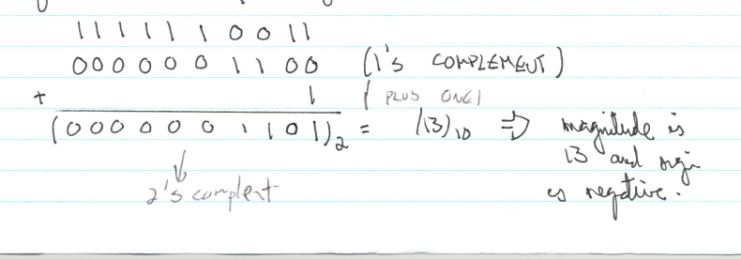 1111110011
0000001100 (1's COMPLEMENT)
+ 1 (PLUS ONE)
(0000001101)₂ = (13)₁₀ ⇒ magnitude is
13 and sign
is negative.
2's complent